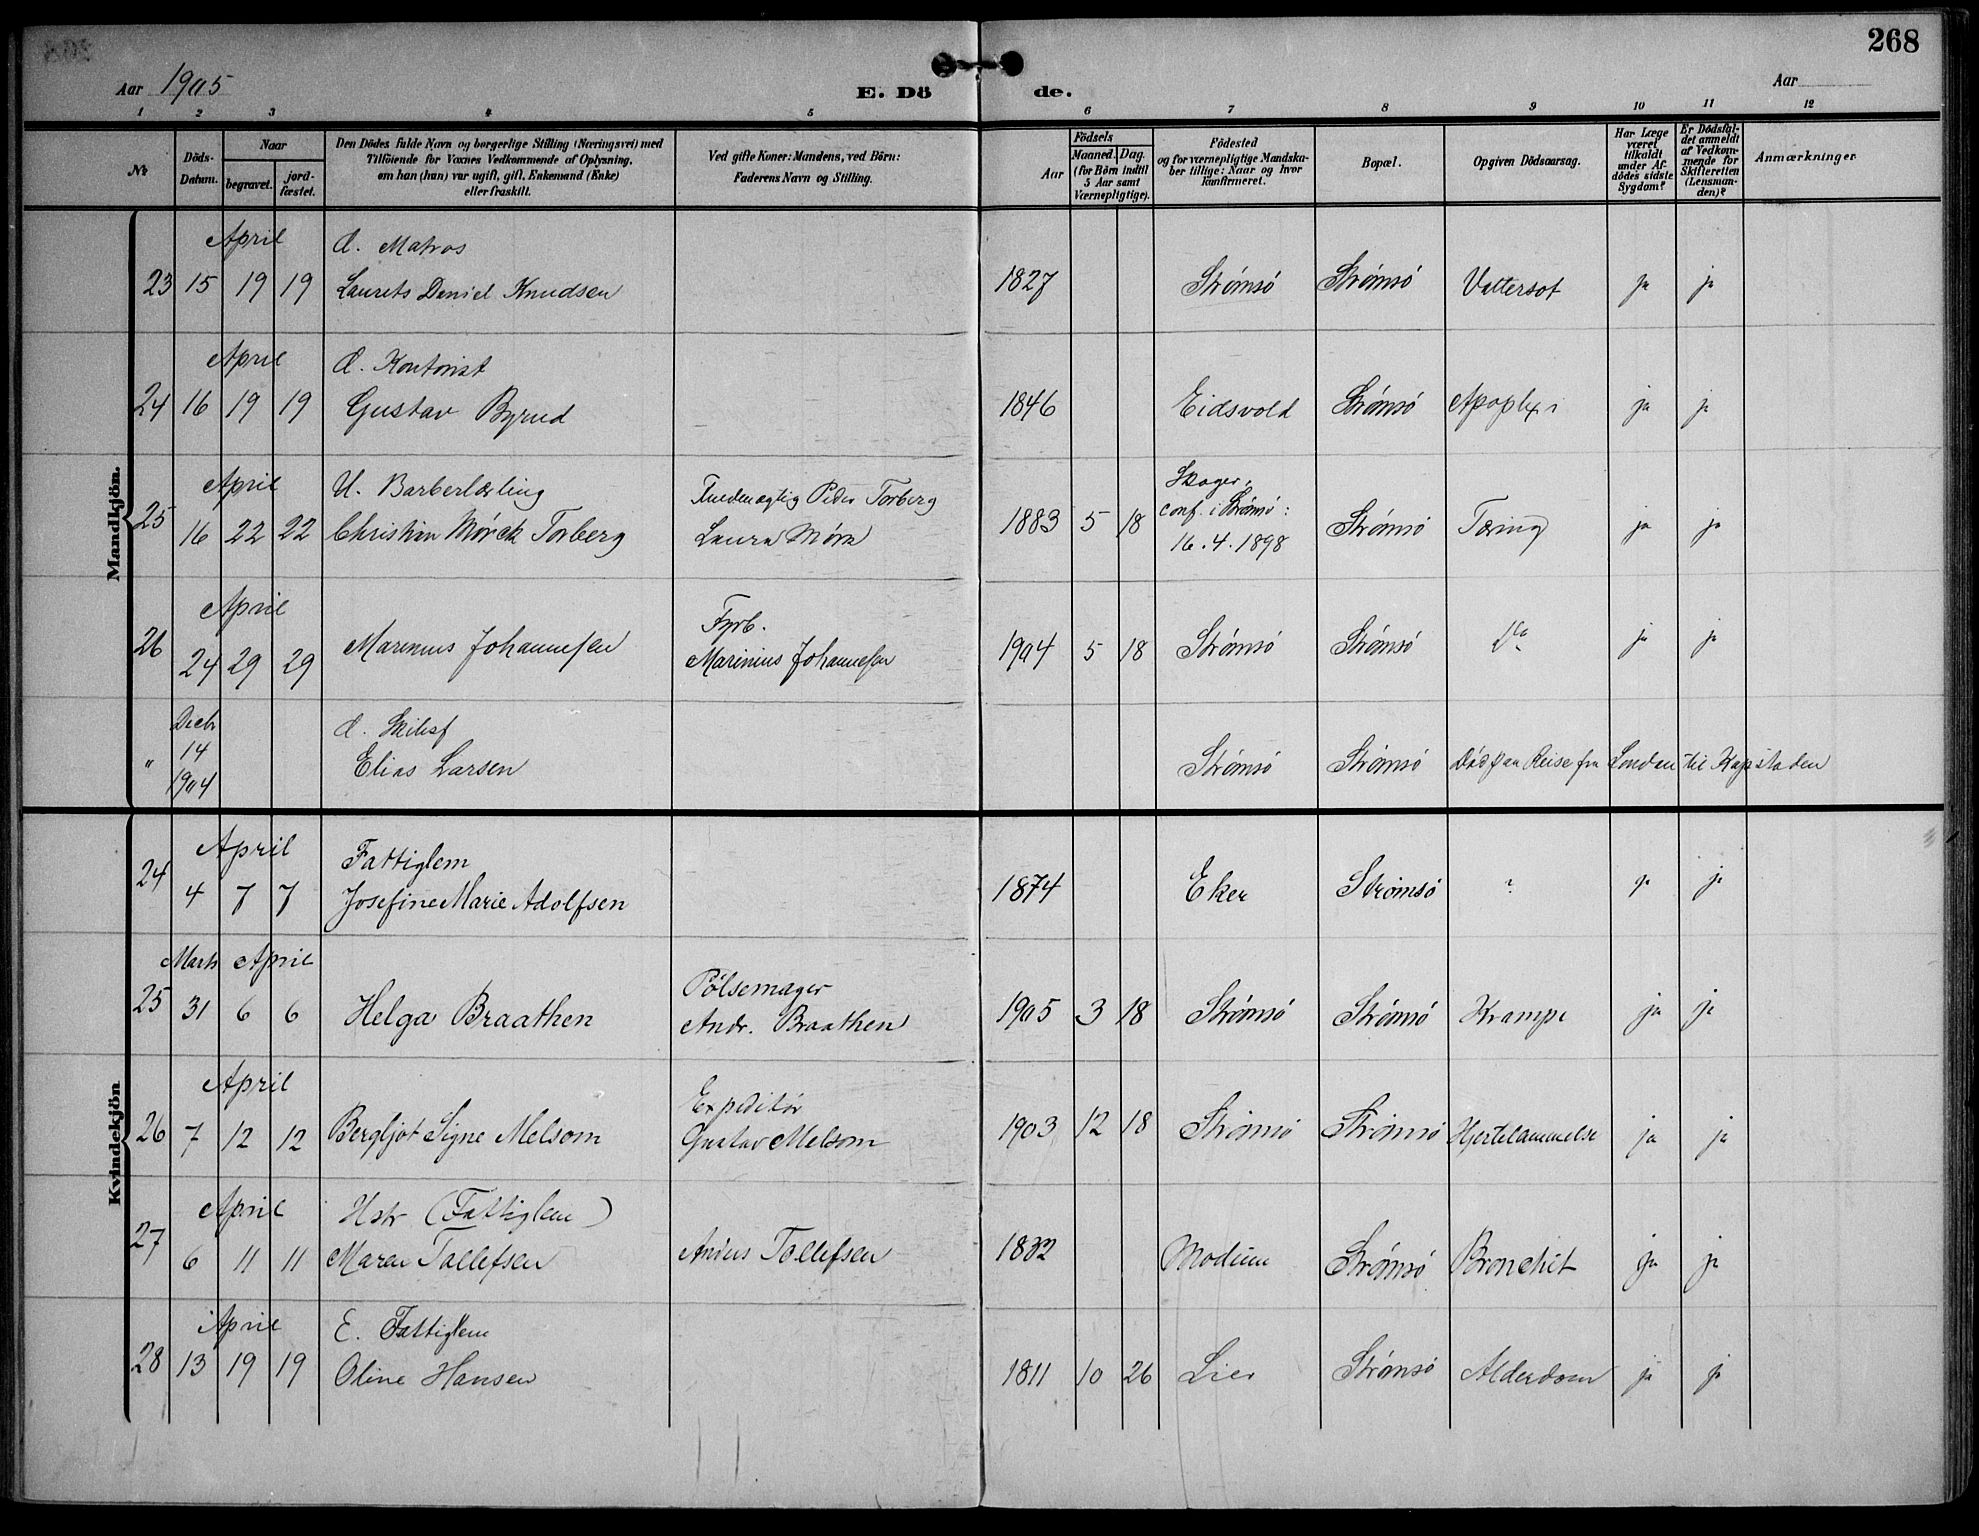 268
Aar 1905
E. Dö de.
Aar
1 2 3 4 5 6 7 8 9 10 11 12
No
Döds-Datum.
Naar
begravet.
jord-fæstet.
Den Dödes fulde Navn og borgerlige Stilling (Næringsvei) med
Tilföiende for Voxnes Vedkommende af Oplysning,
om han (hun) var ugift, gift, Enkemand (Enke)
eller fraskilt.
Ved gifte Koner: Mandens, ved Börn:
Faderens Navn og Stilling.
Födsels
Aar
Maaned. Dag.
(for Börn indtil
5 Aar samt
Værnepligtige).
Födested
og for værnepligtige Mandska-
ber tillige: Naar og hvor
konfirmeret.
Bopæl.
Opgiven Dödsaarsag.
Har Læge
været
tilkaldt
under Af-
dödes sidste
Sygdom?
Er Dödsfal-
det anmeldt
af Vedkom-
mende for
Skifteretten
(Lensman-
den)?
Anmærkninger
Mandkjön.
April
23 15 19 19
d. Matros
Laurets Daniel Knudsen
1827 Strømsö Strømsö Vattersot ja ja
April
24 16 19 19
d. Kontorist
Gustav Byrud
1846 Eidsvold Strømsö Apoplexi ja ja
April
25 16 22 22
U. Barberlærling
Christian Mörck Torberg
Peder Torberg
Laura Mörck
1883 5 18
Skoger.
conf. i Strømsö:
16.4.1898
Strømsö Tæring ja ja
April
26 24 29 29
Marinius Johannesen
Fyrb.
Marinius Johannesen
1904 5 18 Strømsö Strømsö Do ja ja
Decbr
" 14
1904
d.
Elias Larsen
Strømsö Strømsö Död paa Reise fra London til Kapstaden
Kvindekjön
April
24 4 7 7
Fattiglem
Josefine Marie Adolfsen
1874 Eker Strømsö ? ja ja
Marts April
25 31 6 6
Helga Braathen
Pölsemager
Andr. Braathen
1905 3 18 Strømsö Strømsö Krampe ja ja
April
26 7 12 12
Bergljot Signe Melsom
Expeditör
Gustav Melsom
1903 12 18 Strømsö Strømsö Hjertelammelse ja ja
April
27 6 11 11
Hstr (Fattiglem)
Maren Tollefsen
Anders Tollefsen
1832 Modum Strømsö Bronchit ja ja
April
28 13 19 19
E. Fattiglem
Oline Hansen
1811 10 26 Lier Strømsö Alderdom ja ja